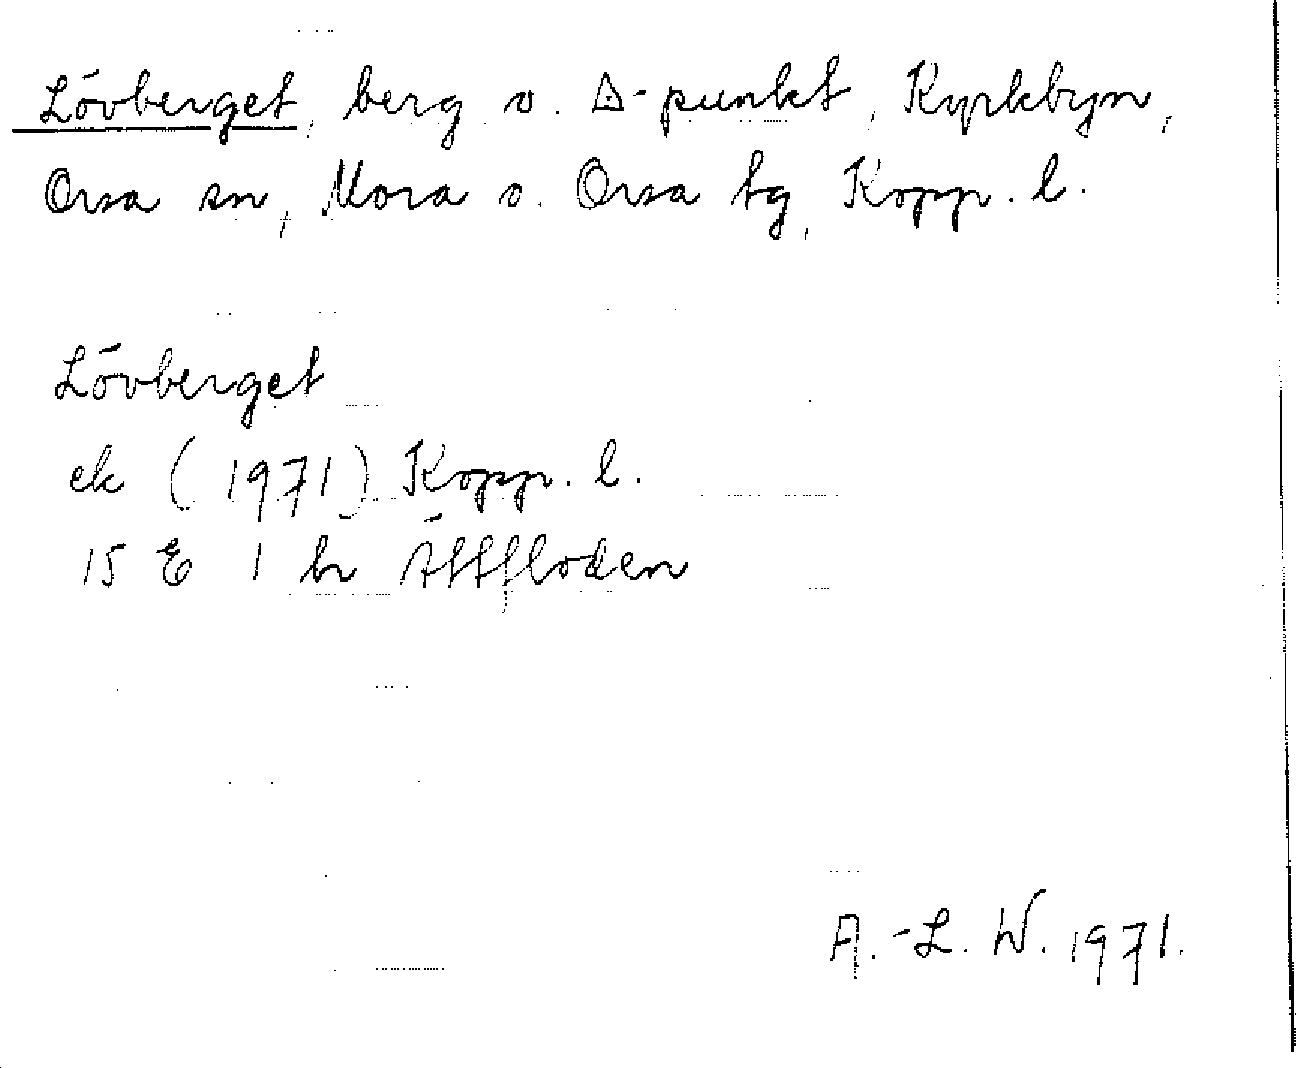 Lövberget, berg o. ∆-punkt, Kyrkbyn,
Orsa sn, Mora o. Orsa tg, Kopp. l.
Lövberget
ek (1971) Kopp. l.
15 E 1 h Åttfloden
A.-L. W. 1971.